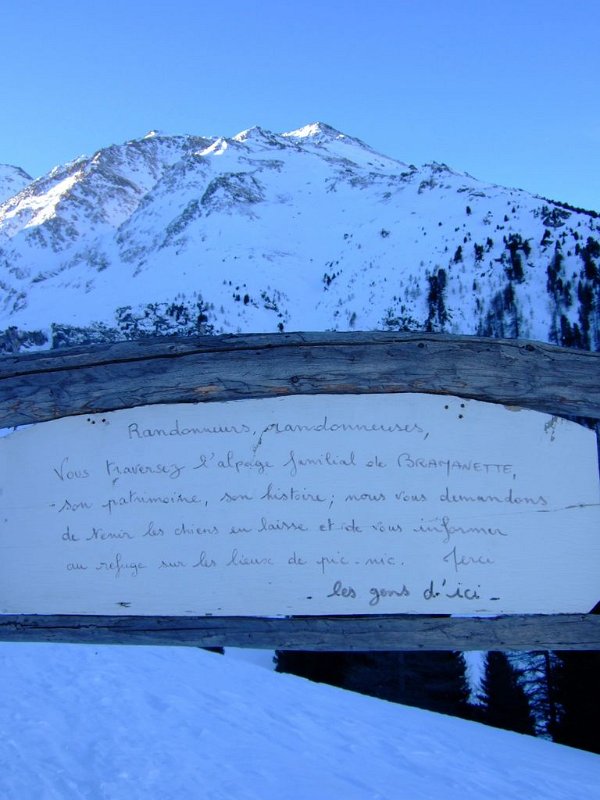 Randonneurs, randonneuses,
Vous traversez l'alpage familial de BRAMANETTE,
son patrimoine, son histoire ; nous vous demandons
de tenir les chiens en laisse et de vous informer
au refuge sur les lieux de pic-nic. Merci
les gens d'ici -